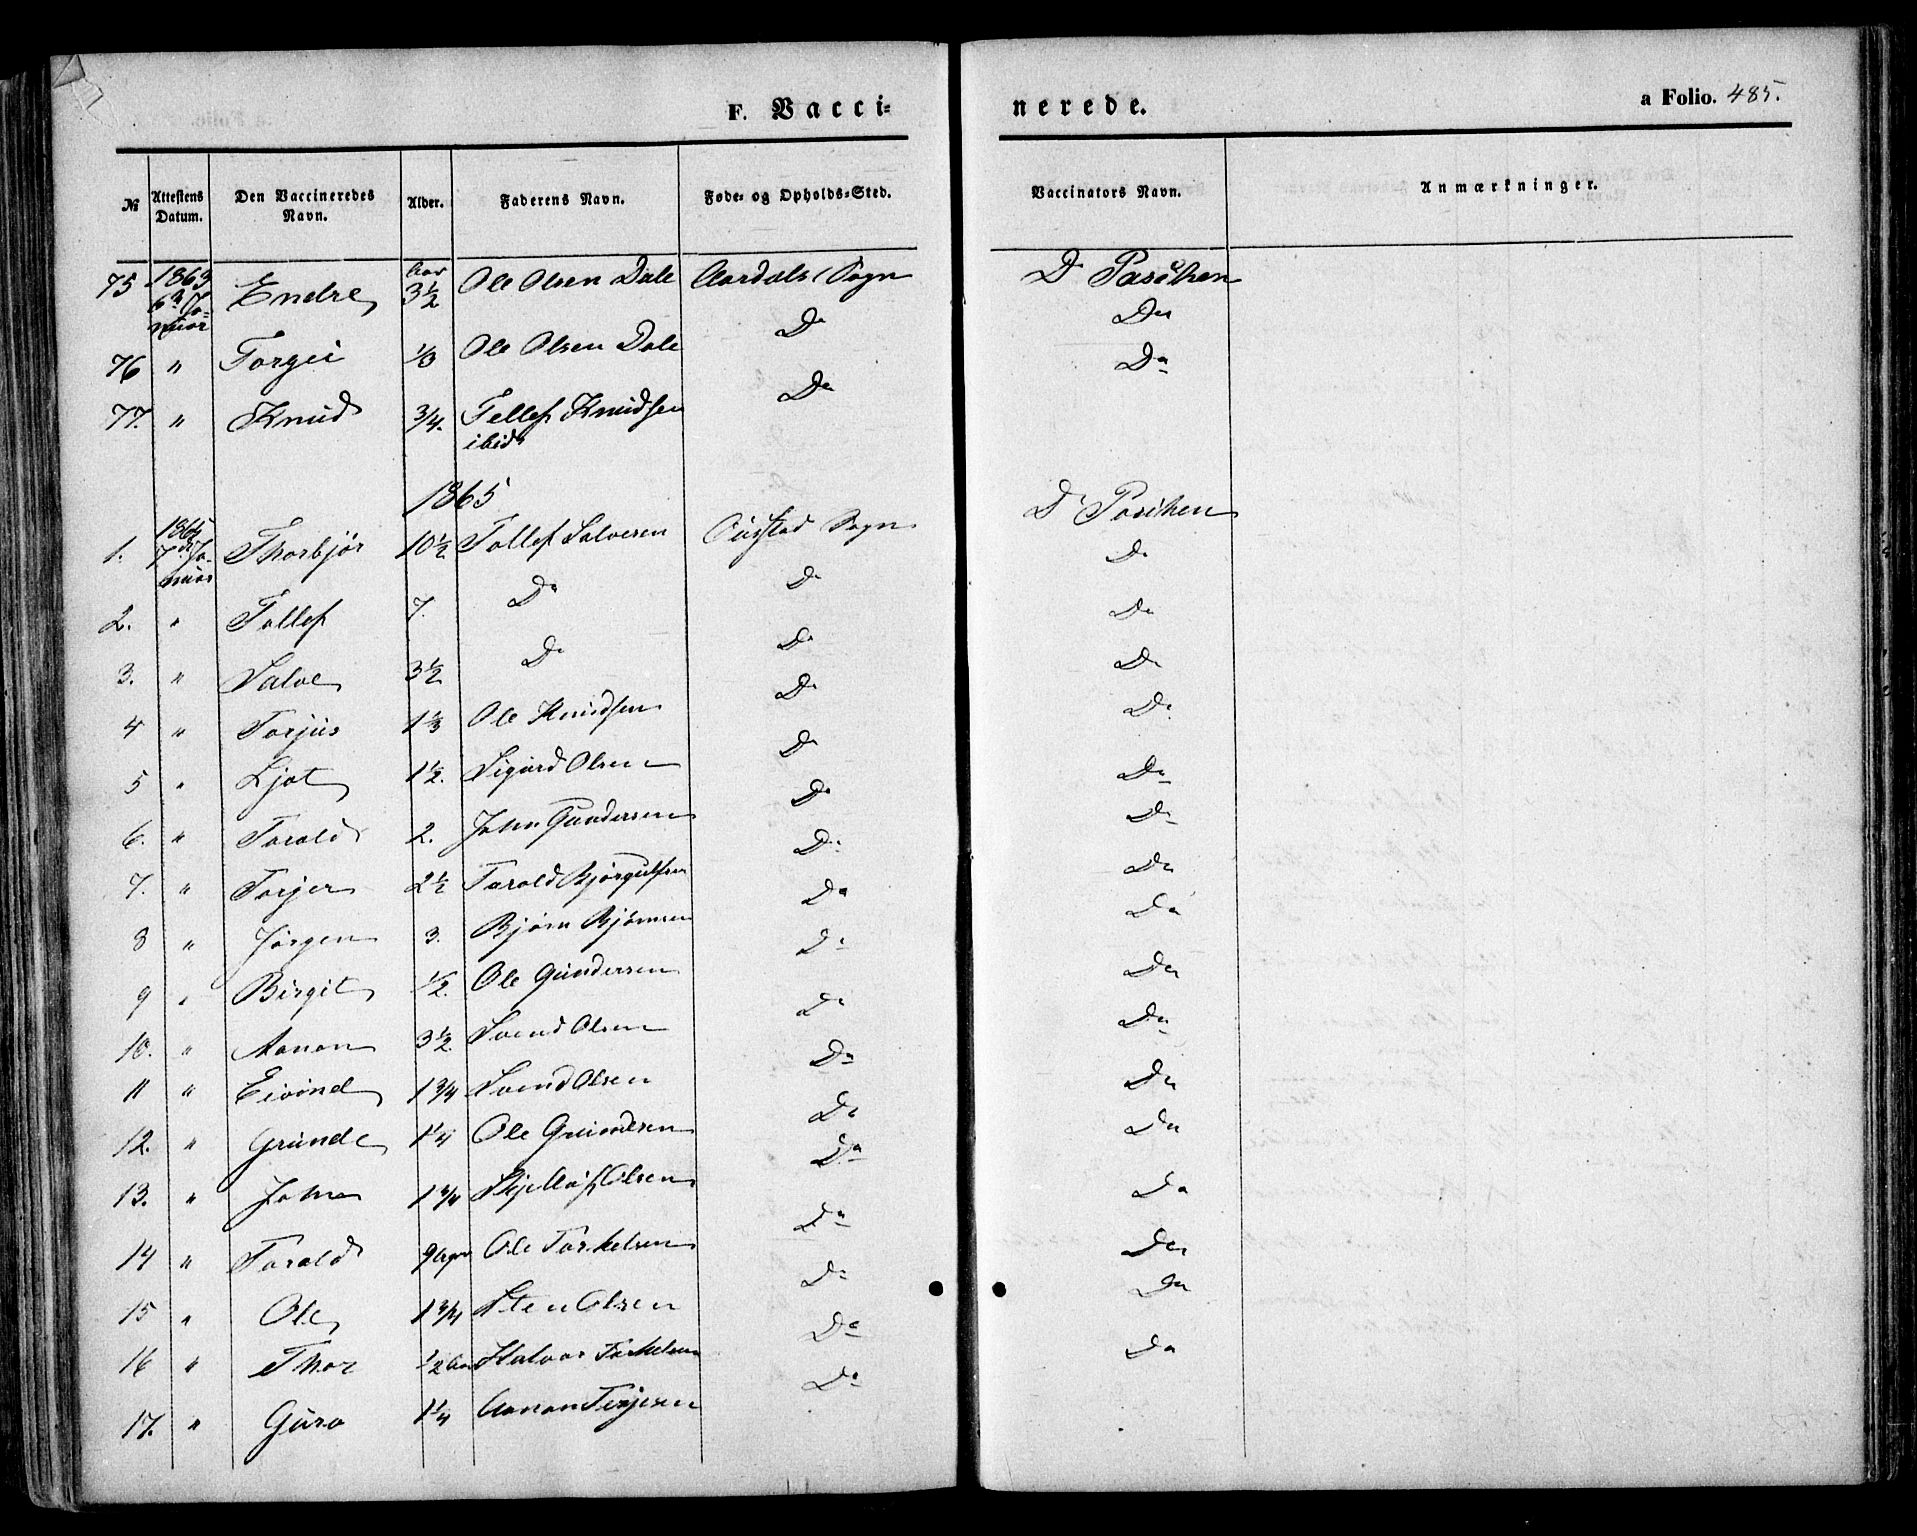 F. Vacci-
nerede.
a Folio. 485.
№ Attestens Datum. Den Vaccineredes Navn. Alder. Faderens Navn. Føde- og Opholds-Sted. Vaccinators Navn. Anmærkninger.
75 1863 6te Januar Endre Aar 3½ Ole Olsen Dale Aardals Sogn Dr Paschen
76 " Torgei 1/3 Ole Olsen Dale Do Do
77. " Knud 3/4. Tellef Knudsen ibid Do Do
1865
1. 1865 7de Januar Thorbjør 10½ Tollef Salvesen Austad Sogn Dr Paschen
2. " Tollef 7. Do Do Do
3. " Salve 3½ Do Do Do
4 " Torjus 1⅓ Ole Knudsen Do Do
5 " Ljot 1½. Sigurd Olsen Do Do
6. " Torald 2. John Gundersen Do Do
7. " Torjer 2½ Tarald Bjørgulfsen Do Do
8 " Jørgen 3. Bjørn Bjørnsen Do Do
9 " Birgit ½. Ole Gundersen Do Do
10. " Aanon 3½ Svend Olsen Do Do
11 " Eivind 1¾ Svend Olsen Do Do
12. " Grunde 1¼ Ole Do Do
13. " John 1¾ Olsen Do Do
14 " Torald 9 Ole Torkelsen Do Do
15 " Ole 1¾ Sten Olsen Do Do
16 " Thor ½ Aar Halvor Torkelsen Do Do
17. " Guro 1¼ Aanon Terjesen Do Do